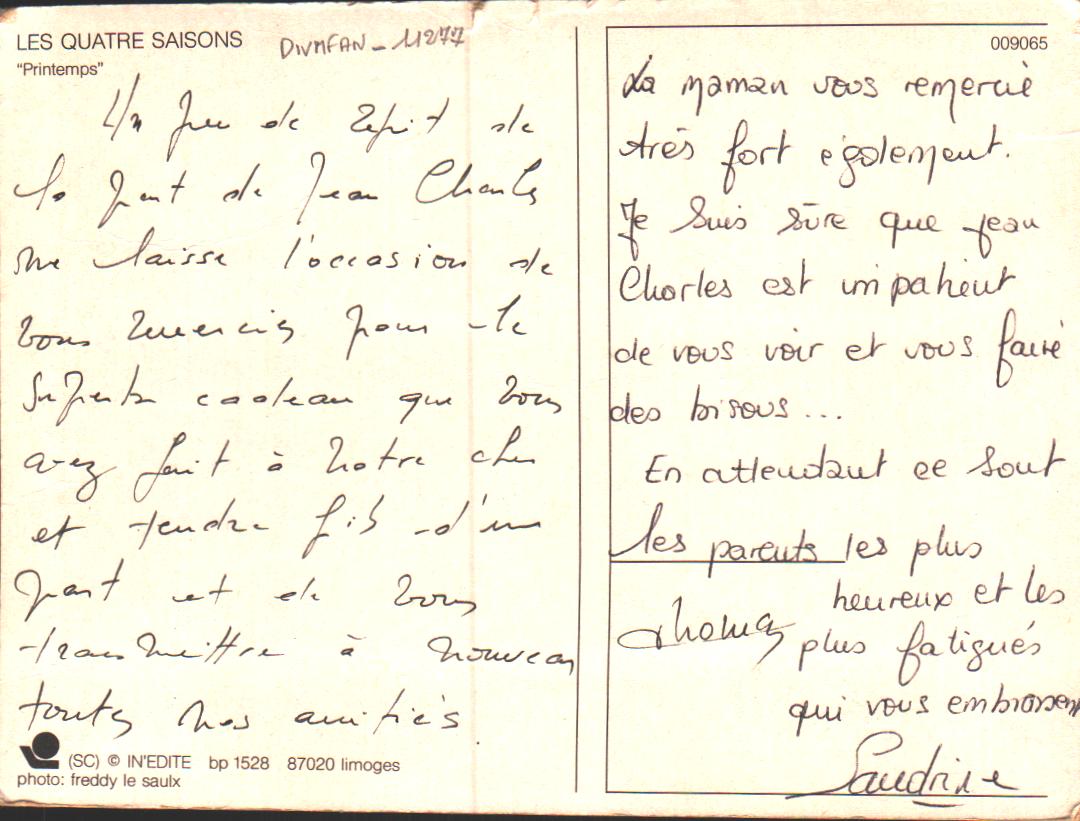 LES QUATRE SAISONS
"Printemps"
DIVMFAN_11277
Un peu de répit de
la part de Jean Charles
me laisse l'occasion de
vous remercier pour le
superbe cadeau que vous
avez fait à notre cher
et tendre fils d'une
part et de vous
transmettre à nouveau
toutes nos amitiés
(SC) © IN'EDITE bp 1528 87020 limoges
photo: freddy le saulx
009065
La maman vous remercie
très fort également.
Je suis sûre que jean
Charles est impatient
de vous voir et vous faire
des bisous...
En attendant ce sont
les parents les plus
heureux et les
plus fatigués
qui vous embrassent
Thomas
Sandrine